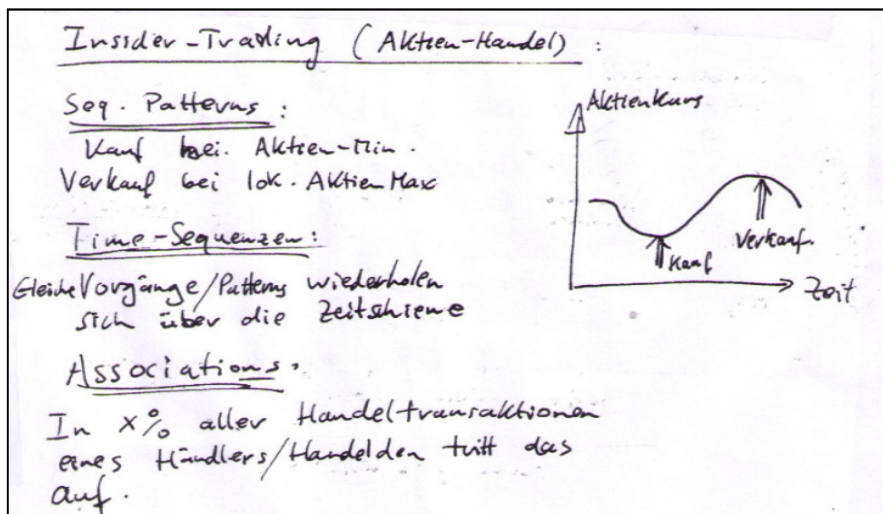 Insider-Trading (Aktien-Handel) :
Seq. Patterns :
Kauf bei. Aktien-Min.
Verkauf bei lok. Aktien Max
Time-Sequenzen :
Gleiche Vorgänge/Patterns wiederholen
sich über die Zeitschiene
Associations.
In x% aller Handeltransaktionen
eines Händlers/Handelden tritt das
auf.
Aktienkurs
Verkauf.
Kauf
Zeit